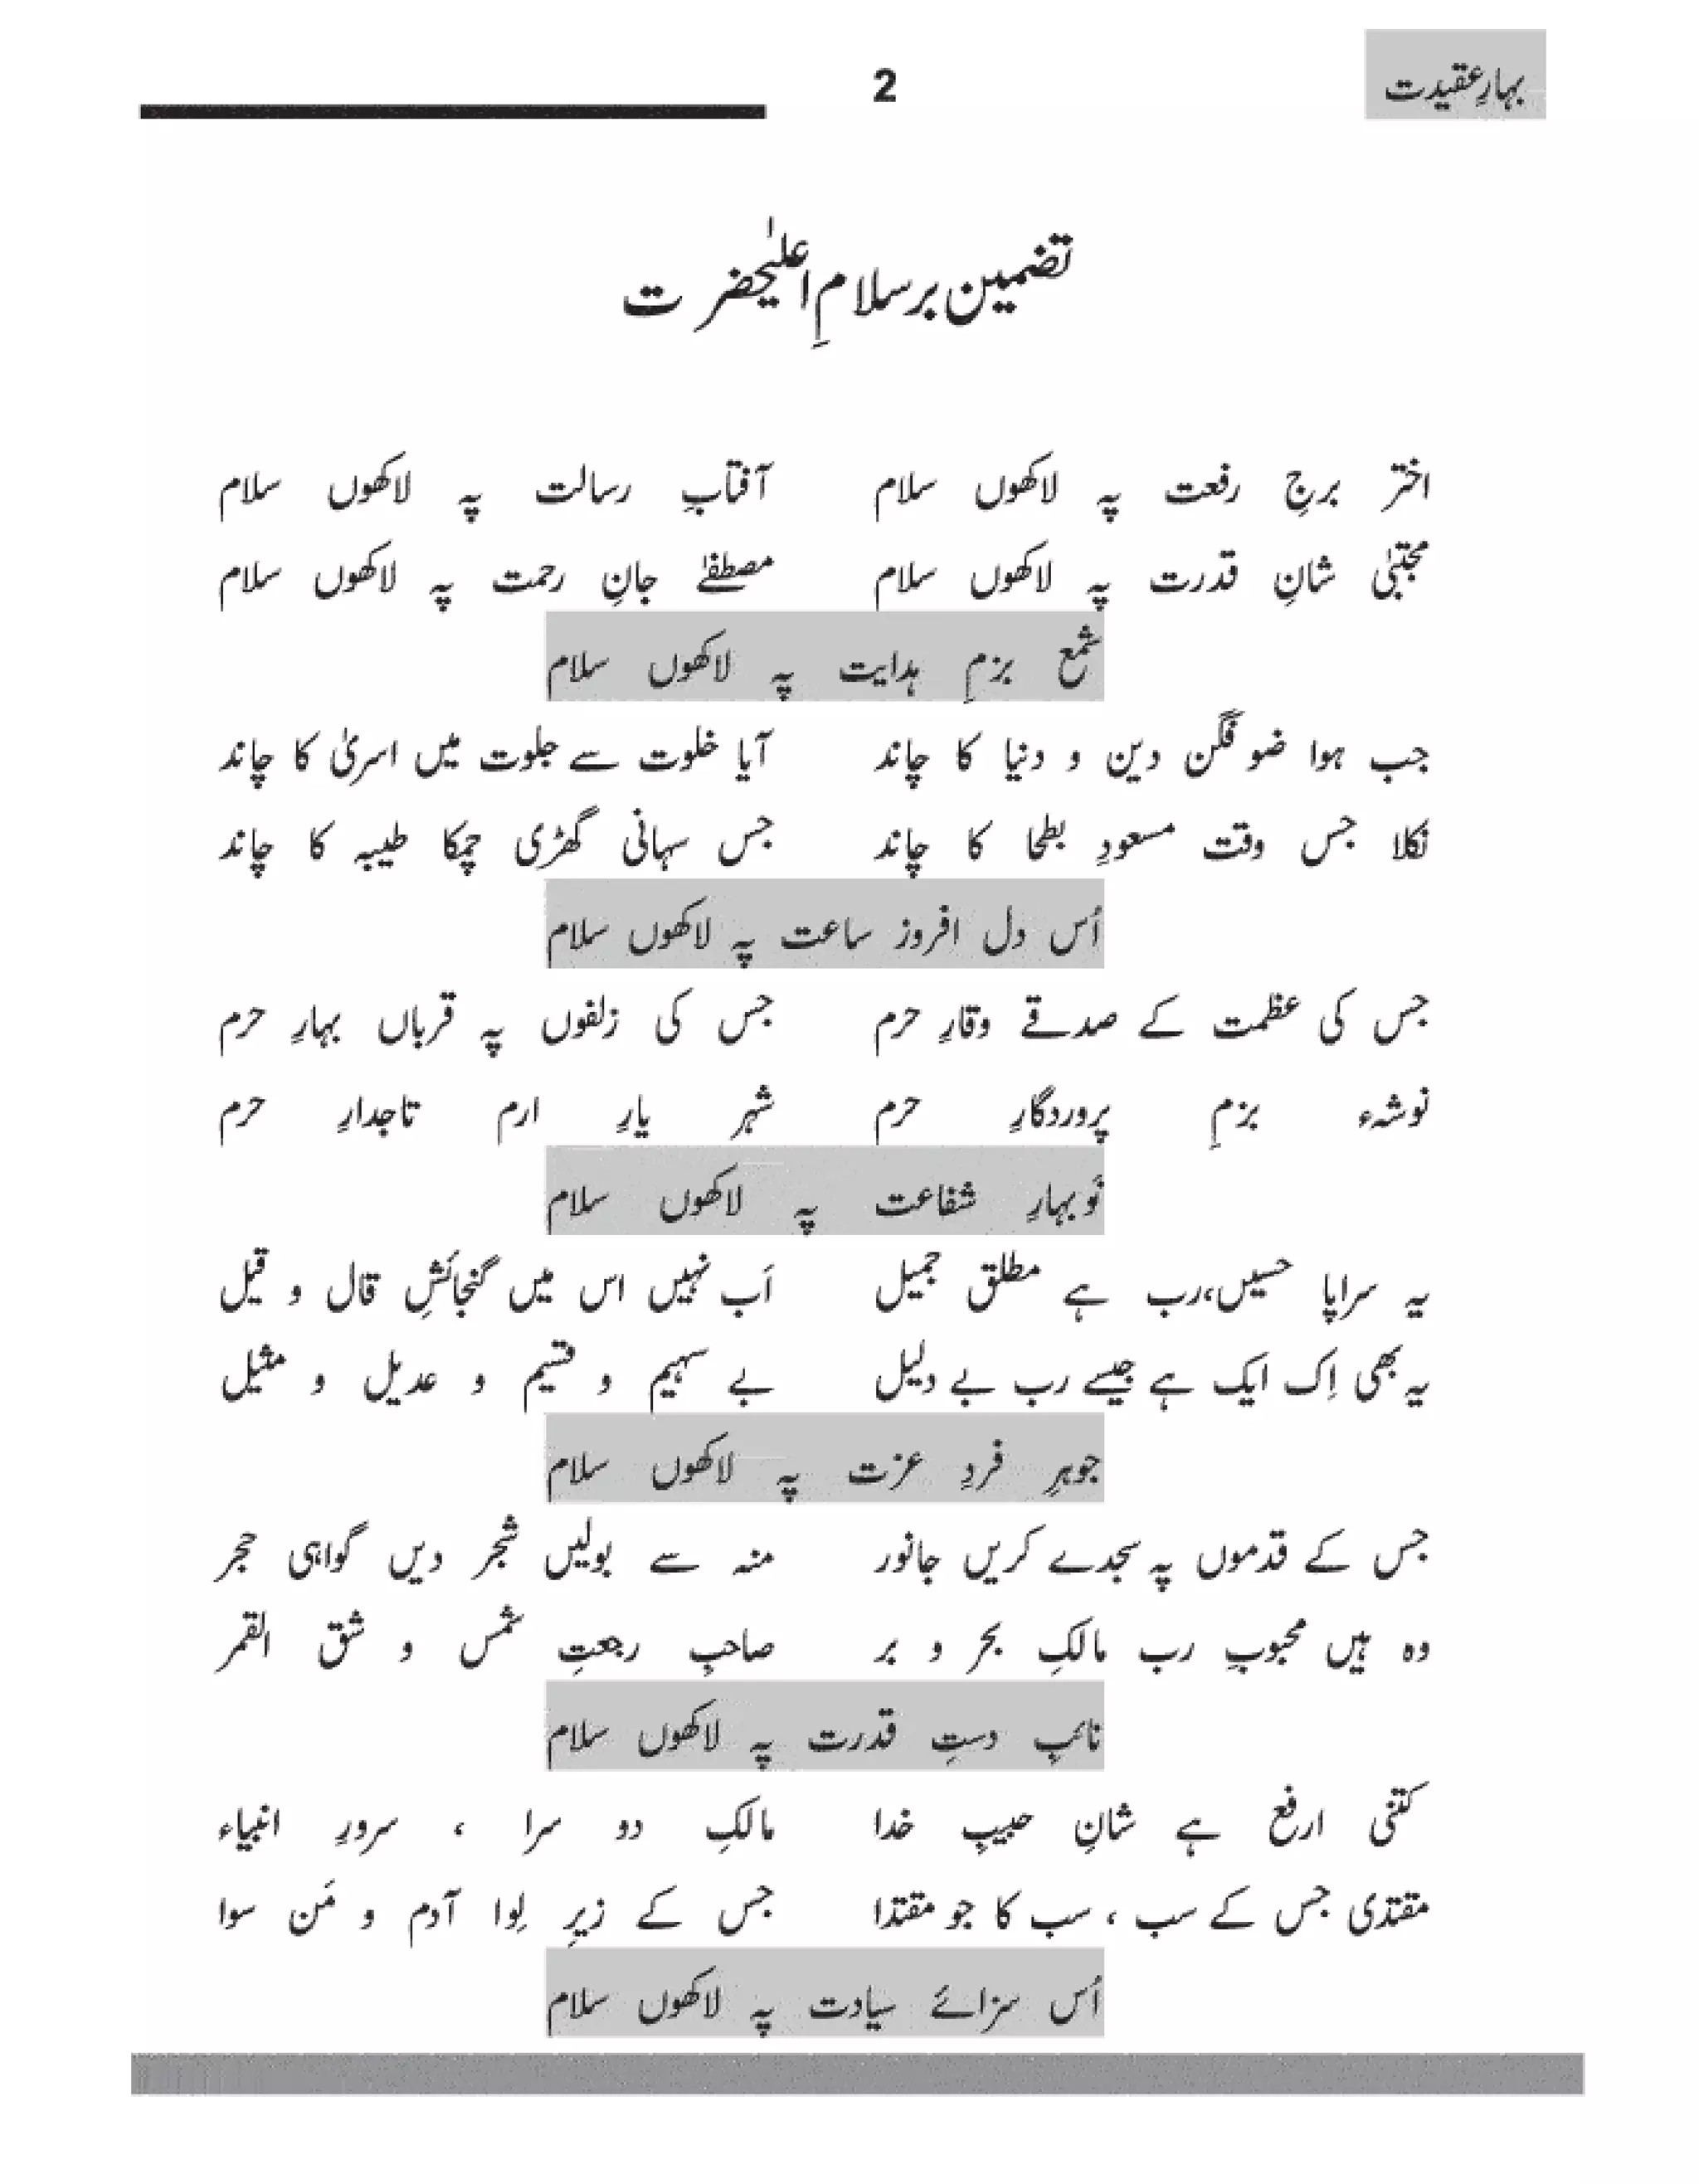 بہارِ عقیدت
2
تضمین بر سلامِ اعلیٰحضرت
اختر برجِ رفعت پہ لاکھوں سلام آفتابِ رسالت پہ لاکھوں سلام
مجتبیٰ شانِ قدرت پہ لاکھوں سلام مصطفےٰ جانِ رحمت پہ لاکھوں سلام
شمع بزمِ ہدایت پہ لاکھوں سلام
جب ہوا ضوفگن دین و دنیا کا چاند آیا خلوت سے جلوت میں اسریٰ کا چاند
نکلا جس وقت مسعودِ بطحا کا چاند جس سہانی گھڑی چمکا طیبہ کا چاند
اُس دل افروز ساعت پہ لاکھوں سلام
جس کی عظمت کے صدقے وقارِ حرم جس کی زلفوں پہ قرباں بہارِ حرم
نوشہء بزمِ پروردگارِ حرم شہر یارِ ارم تاجدارِ حرم
نَوبہارِ شفاعت پہ لاکھوں سلام
یہ سراپا حسیں،رب ہے مطلق جمیل اَب نہیں اس میں گنجائشِ قال و قیل
یہ بھی اِک ایک ہے جیسے رب بے دلیل بے سہیم و قسیم و عدیل و مثیل
جوہرِ فردِ عزت پہ لاکھوں سلام
جس کے قدموں پہ سجدے کریں جانور منہ سے بولیں شجر دیں گواہی حجر
وہ ہیں محبوبِ رب مالکِ بحر و بر صاحبِ رجعتِ شمس و شق القمر
نائبِ دستِ قدرت پہ لاکھوں سلام
کتنی ارفع ہے شانِ حبیبِ خدا مالکِ دو سرا ، سرورِ انبیاء
مقتدی جس کے سب ، سب کا جو مقتدا جس کے زیرِ لِوا آدم و مَن سوا
اُس سزائے سیادت پہ لاکھوں سلام